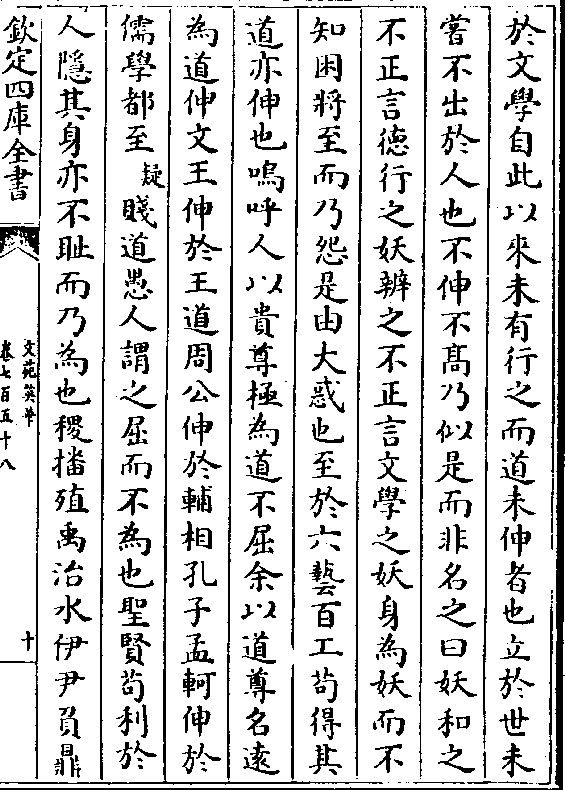 於文學自此以來未有行之而道未伸者也立於世未
嘗不出於人也不伸不髙乃似是而非名之曰妖和之
不正言德行之妖辨之不正言文學之妖身為妖而不
知困將至而乃怨是由大惑也至於六藝百工苟得其
道亦伸也嗚呼人以貴尊極為道不屈余以道尊名逺
為道伸文王伸於王道周公伸於輔相孔子孟軻伸於
儒學都至疑賤道愚人謂之屈而不為也聖賢苟利於
人隱其身亦不耻而乃為也稷播殖禹治水伊尹負鼎
欽定四庫全書
文苑英華
卷七百五十八
十